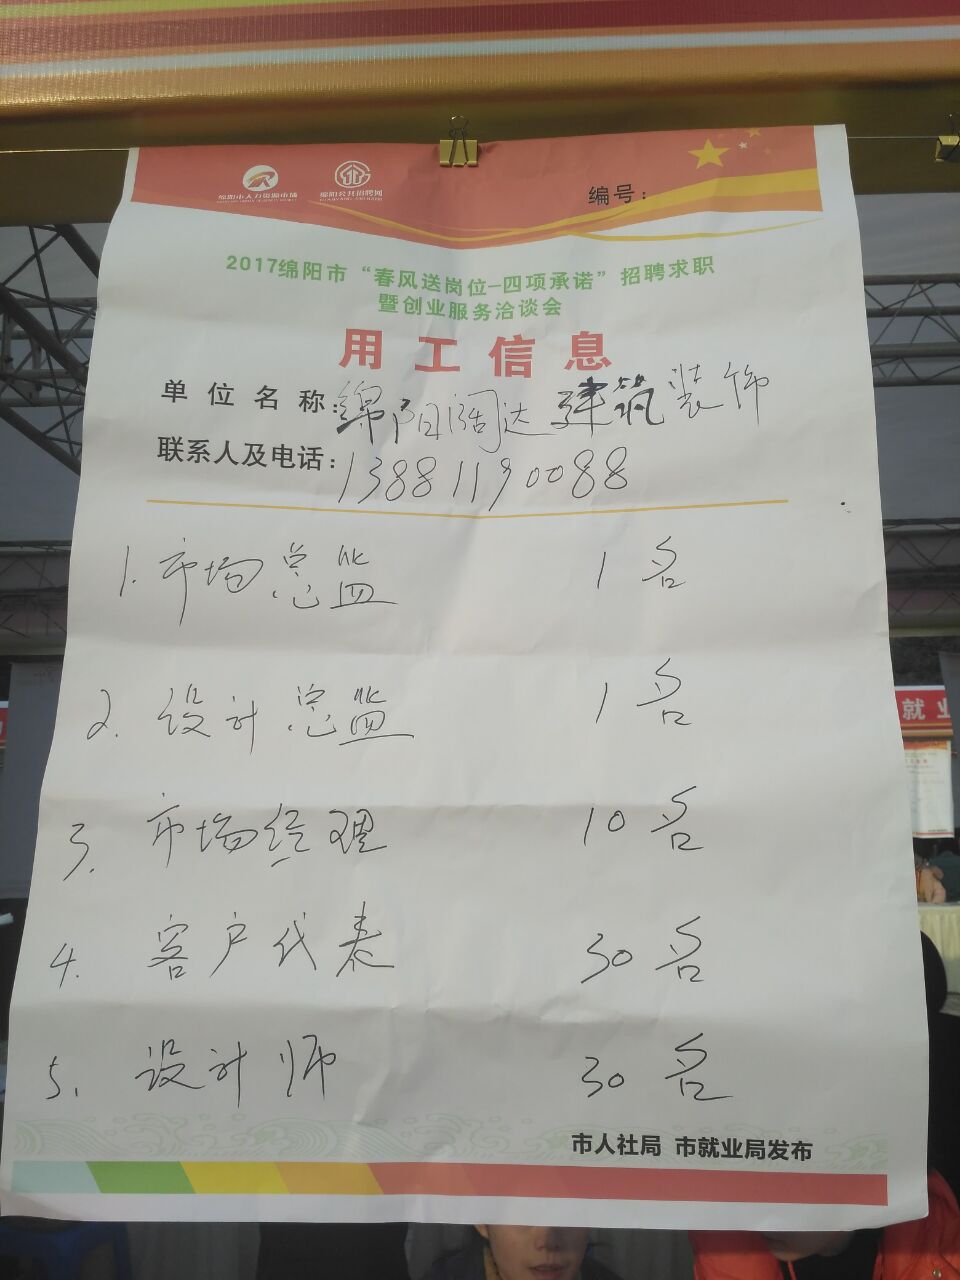 绵阳市人力资源市场
绵阳公共招聘网
编号：
2017绵阳市“春风送岗位-四项承诺”招聘求职
暨创业服务洽谈会
用工信息
单位名称：绵阳阔达建筑装饰
联系人及电话：13881190088
1.市场总监 1名
2.设计总监 1名
3.市场经理 10名
4.客户代表 30名
5.设计师 30名
市人社局 市就业局发布
就业